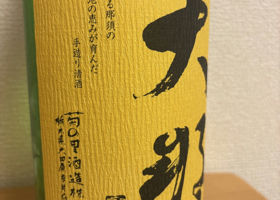 る那須の
地の恵みが育んだ
手造り清酒
大那
菊の里酒造株
栃木県大田原市片府